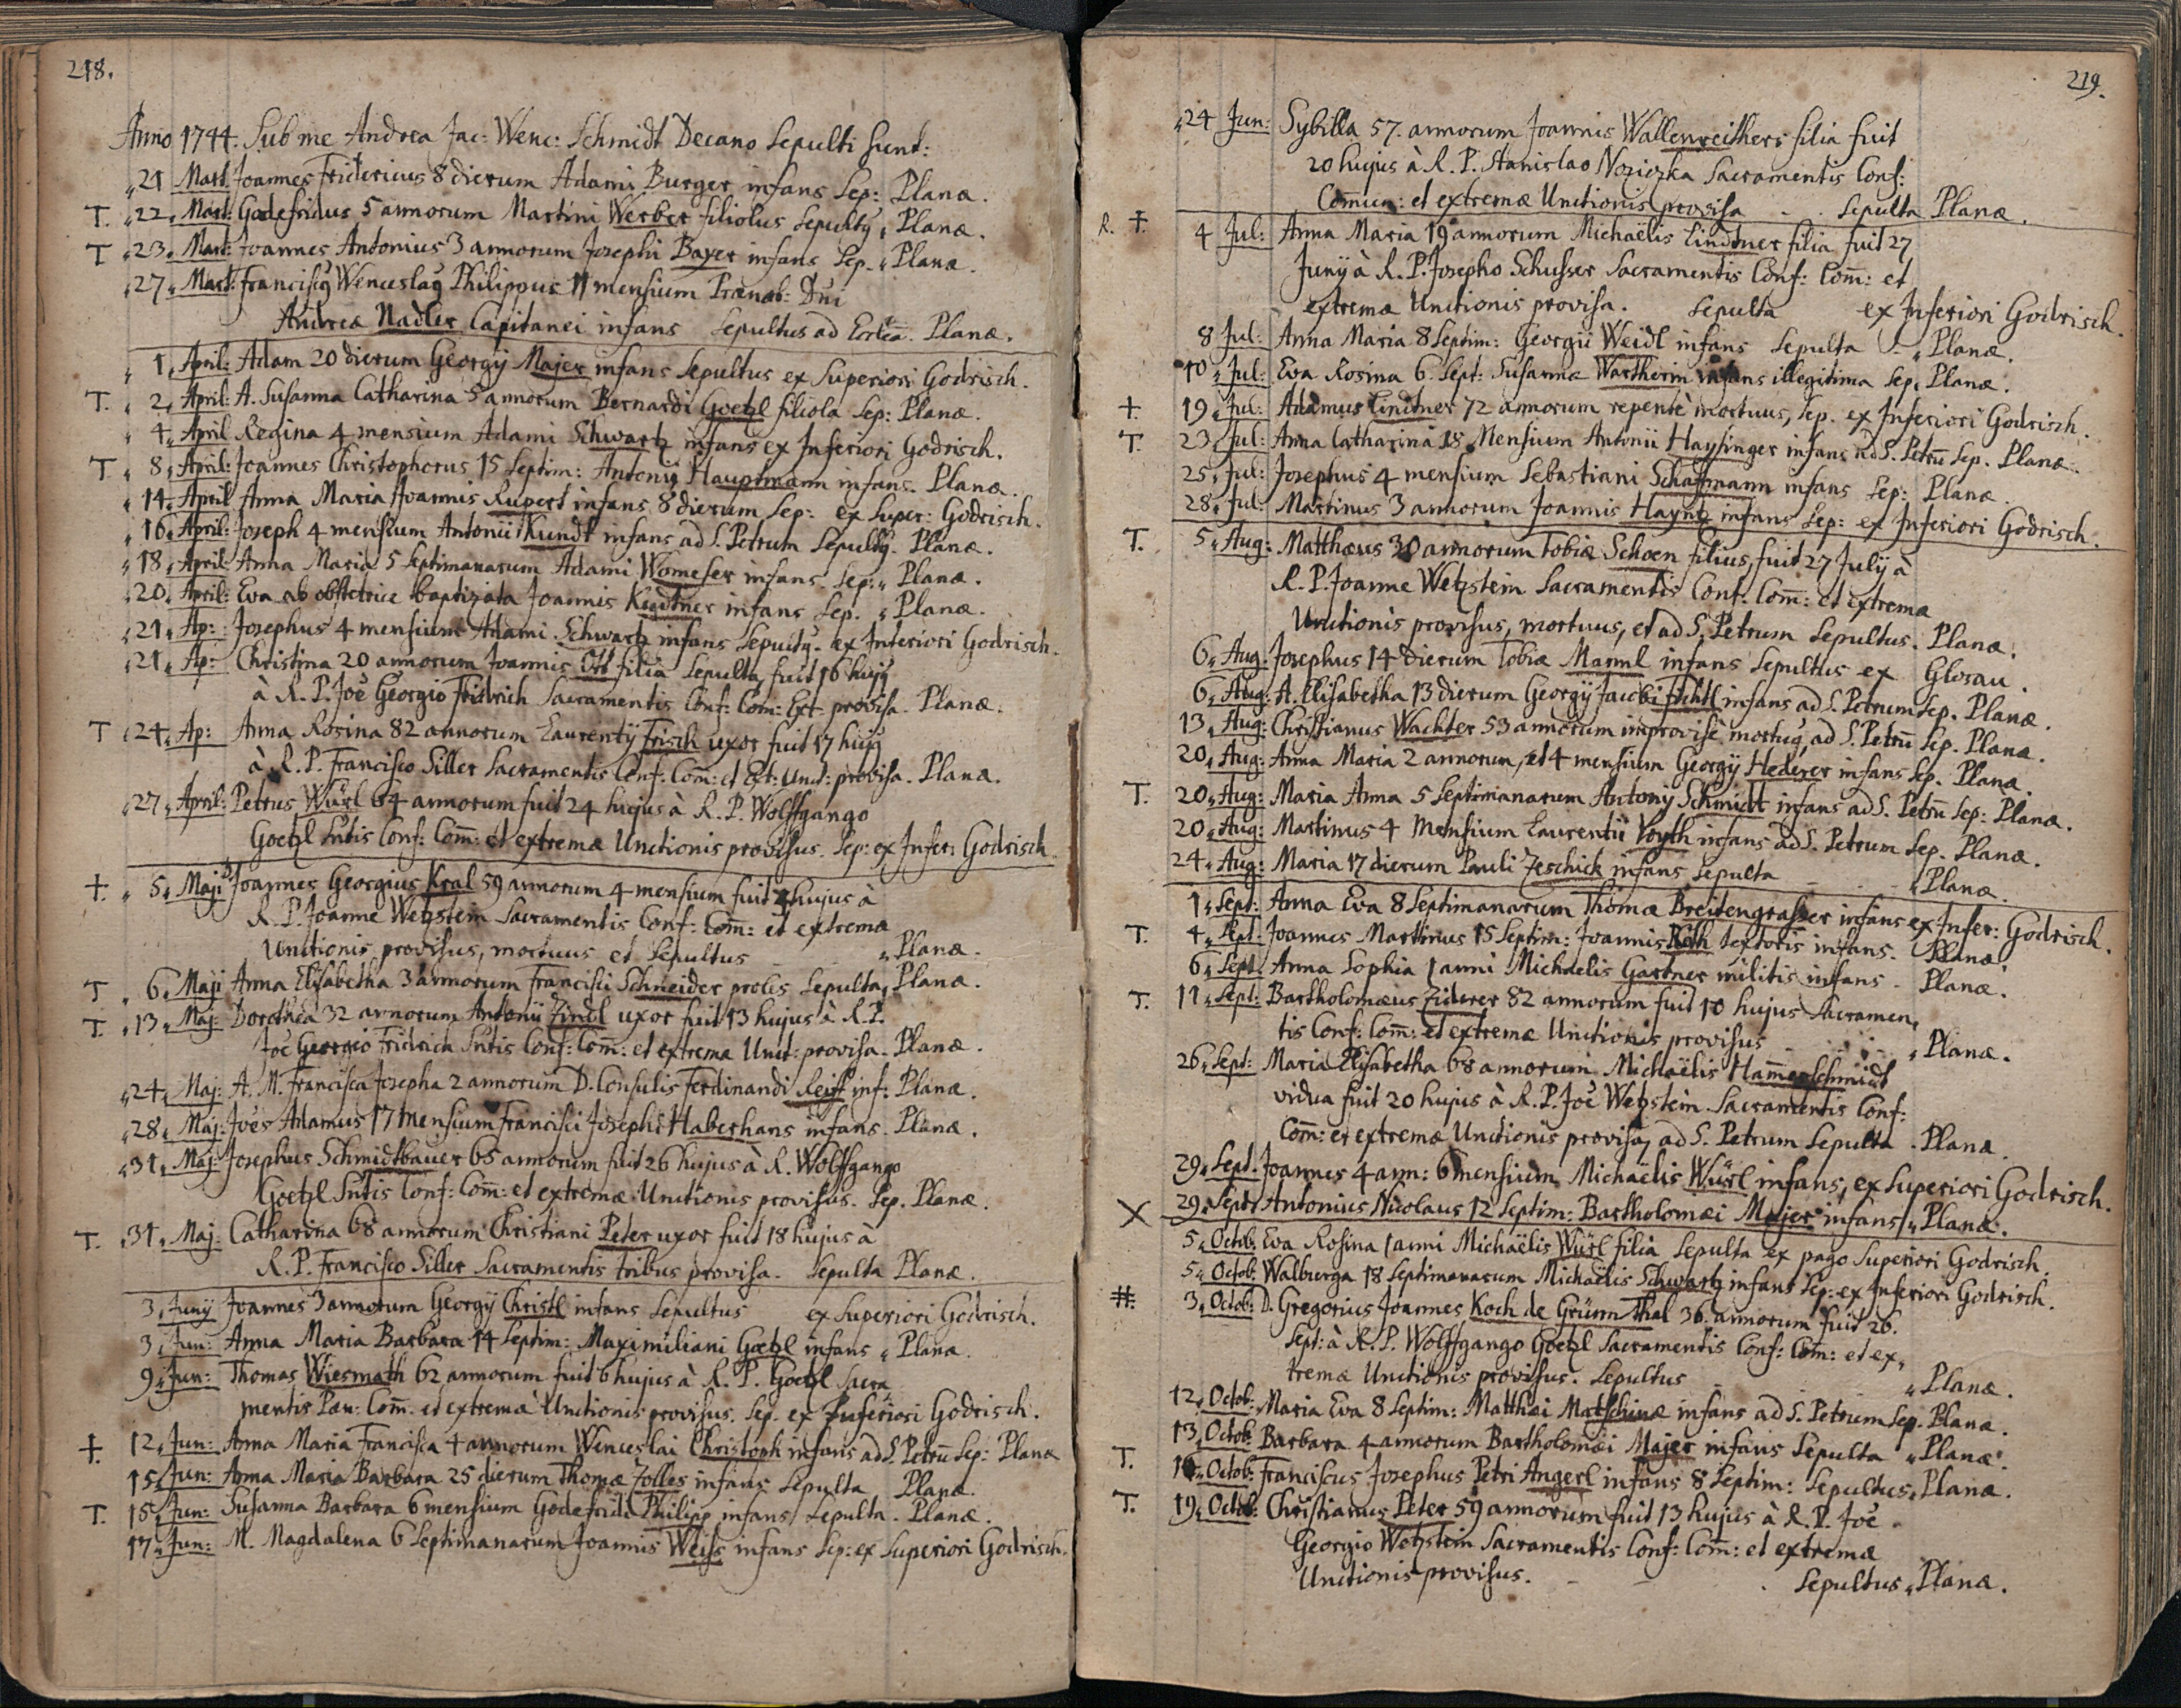 218.
Anno 1744. Sub me Andrea Jac: Wenc: Schmidt Decano Sepulti sunt:
21 Mart. Joannes Fridericus 8 dierum Adami Burger infans Sep: Planæ.
T. 22. Mart: Godefridus 5 annorum Martini Werber filiolus Sepultq. Planæ.
T 23. Mart: Joannes Antonius 3 annorum Josephi Bayer infans Sep. Planæ.
27. Mart: Franciscq Wenceslaq Philippus 11 mensium Prænob: Dni
Andreæ Nadler Capitanei infans Sepultus ad Eccleā. Planæ.
1. April: Adam 20 dierum Georgij Majer infans Sepultus ex Superiori Godrisch.
T. 2. April: A. Susanna Catharina 5 annorum Bernardi Goetzl filiola Sep: Planæ.
4. April Regina 4 mensium Adami Schwartz infans ex Inferiori Godrisch.
T 8. April: Joannes Christophorus 15 Septim: Antonij Hauptmann infans. Planæ.
14. April Anna Maria Joannis Rupert infans 8 dierum Sep: ex Super: Godrisch.
16. April: Joseph 4 mensium Antonii Kundt infans ad S. Petrum Sepultq. Planæ.
18. April Anna Maria 5 Septimanarum Adami Womeser infans. Sep: Planæ.
20. April: Eva ab obstetrice baptizata Joannis infans Sep. Planæ.
21. Ap: Josephus 4 mensium Adami Schwartz infans Sepultq. ex Inferiori Godrisch.
21. Ap: Christina 20 annorum Joannis Ott filia Sepulta, fuit 16 hujq
à R. P. Joe Georgio Fridrich Sacramentis Conf: Com: Ext: provisa. Planæ.
T 24. Ap: Anna Rosina 82 annorum Laurentij Frisch uxor fuit 17 hujq
à R. P. Francisco Siller Sacramentis Conf: Com̄: et Ext: Unct: provisa. Planæ.
27. April: Petrus Würl 64 annorum fuit 24 hujus à R. P. Wolffgango
Goetzl Sntis Conf: Com̄: et extremæ Unctionis provisus. Sep: ex Infer: Godrisch
+. 5. Maji Joannes Georgius Kral 59 annorum 4 mensium fuit 3 hujus à
R. P. Joanne Wetzstein Sacramentis Conf: Com̄: et extremæ
Unctionis provisus, mortuus et Sepultus Planæ.
T 6. Maji Anna Elisabetha 3 annorum Francisci Schneider proles Sepulta, Planæ.
T. 13. Maj: Dorothea 32 annorum Antonii Zindl uxor fuit 13 hujus à R. P.
Joē Georgio Fridrich Sntis Conf: Com̄: et extrema Unct: provisa. Planæ.
24. Maj: A. M. Francisca Josepha 2 annorum D. Consulis Ferdinandi Reiff inf: Planæ.
28. Maj: Joēs Adamus 17 mensium Francisci Josephi Haberhans infans. Planæ.
31. Maj: Josephus Schmidtbauer 65 annorum fuit 26 hujus à R. Wolffgango
Goetzl Sntis Conf: Com̄: et extremæ Unctionis provisus. Sep. Planæ.
T. 31. Maj: Catharina 68 annorum Christiani Peter uxor fuit 18 hujus à
R. P. Francisco Siller Sacramentis tribus provisa. Sepulta Planæ.
3. Junij Joannes 3 annorum Georgij Christl infans Sepultus ex Superiori Godrisch.
3. Jun: Anna Maria Barbara 14 Septim: Maximiliani Goetzl infans Planæ.
9. Jun: Thomas Wiesmath 62 annorum fuit 6 hujus à R. P. Goetzl Sacra
mentis Com̄. et extremæ Unctionis provisus. Sep. ex Inferiori Godrisch.
+. 12. Jun: Anna Maria Francisca 4 annorum Wenceslai Christoph infans ad S. Petrū Sep: Planæ
15. Jun: Anna Maria Barbara 25 dierum Thomæ Zolles infans Sepulta Planæ.
T. 15. Jun: Susanna Barbara 6 mensium Godefridi Philipp infans Sepulta. Planæ.
17. Jun: M. Magdalena 6 Septimanarum Joannis Weiss infans Sep: ex Superiori Godrisch.
219.
24 Jun: Sybilla 57. annorum Joannis Wallenreithers filia fuit
20 hujus à R. P. Stanislao Noziczka Sacramentis Conf:
Com̄un: et extremæ Unctionis provisa . . Sepulta Planæ.
R. +. 4 Jul: Anna Maria 19 annorum Michaëlis Lindtner filia fuit 27
Junij à R. P. Josepho Schusser Sacramentis Conf: Com̄: et
extremæ Unctionis provisa. Sepulta ex Inferiori Godrisch.
8 Jul: Anna Maria 8 Septim: Georgii Weidl infans Sepulta Planæ.
10. Jul: Eva Rosina 6 Sept: Susannæ Wartherin infans illegitima Sep. Planæ.
+. 19. Jul: Adamus Lindtner 72 annorum repentè mortuus, Sep. ex Inferiori Godrisch.
T. 23. Jul: Anna Catharina 18 Mensium Antonii Haysinger infans ad S. Petrū Sep. Planæ.
25. Jul: Josephus 4 mensium Sebastiani Schafmann infans Sep: Planæ.
28. Jul: Martinus 3 annorum Joannis Hayntz infans Sep: ex Inferiori Godrisch.
T. 5. Aug: Matthæus 30 annorum Tobiæ Schoen filius, fuit 27 Julij à
R. P. Joanne Wetzstein Sacramentis Conf: Com̄: et extrema
Unctionis provisus, mortuus, et ad S. Petrum Sepultus. Planæ.
6. Aug. Josephus 14 dierum Tobiæ Mannl infans Sepultus ex Glosau.
6. Aug: A. Elisabetha 13 dierum Georgij Jacobi infans ad S. Petrum Sep. Planæ.
13. Aug: Christianus Wachter 53 annorum improvisè mortuq, ad S. Petrū Sep. Planæ.
20. Aug: Anna Maria 2 annorum, et 4 mensium Georgij Hederer infans Sep. Planæ.
T. 20. Aug: Maria Anna 5 Septimanarum Antonij Schmidt infans ad S. Petrū Sep: Planæ.
20. Aug: Martinus 4 Mensium Laurentii Voyth infans ad S. Petrum Sep. Planæ.
24. Aug: Maria 17 dierum Pauli Zeschick infans Sepulta Planæ.
1. Sept: Anna Eva 8 Septimanarum Thomæ Breitengrasser infans ex Infer: Godrisch.
T. 4. Sept: Joannes Martinus 15 Septim: Joannis Roth textoris infans. Planæ.
6. Sept. Anna Sophia 1 anni Michaelis Gartner militis infans. Planæ.
T. 11. Sept: Bartholomæus Ziderer 82 annorum fuit 10 hujus Sacramen,
tis Conf: Com̄: et extremæ Unctionis provisus Planæ.
26. Sept: Maria Elisabetha 68 annorum Michaëlis Ham̄erschmidt
vidua fuit 20 hujus à R. P. Joē Wetzstein Sacramentis Conf:
Com̄: et extremæ Unctionis provisa, ad S. Petrum Sepulta. Planæ.
29. Sept. Joannes 4 ann: 6 mensium Michaëlis Würl infans, ex Superiori Godrisch.
X 29. Sept. Antonius Nicolaus 12 Septim: Bartholomæi Majer infans, Planæ.
5. Octob. Eva Rosina 1 anni Michaëlis Würl filia Sepulta ex pago Superiori Godrisch.
5. Octob. Walburga 18 Septimanarum Michaëlis Schwartz infans Sep: ex Inferiori Godrisch.
#. 3. Octob: D. Gregorius Joannes Koch de Grünn Thal 36. annorum fuit 26.
Sept: à R. P. Wolffgango Goetzl Sacramentis Conf: Com̄: et ex,
tremæ Unctionis provisus. Sepultus Planæ.
12. Octob: Maria Eva 8 Septim: Matthæi Matschinæ infans ad S. Petrum Sep. Planæ.
13. Octob: Barbara 4 annorum Bartholomæi Majer infans Sepulta Planæ.
T. Octob: Franciscus Josephus Petri Angerl infans 8 Septim: Sepultus, Planæ.
T. 19. Octob: Christianus Peter 59 annorum fuit 13 hujus à R. P. Joē
Georgio Wetzstein Sacramentis Conf: Com̄: et extremæ
Unctionis provisus. Sepultus Planæ.